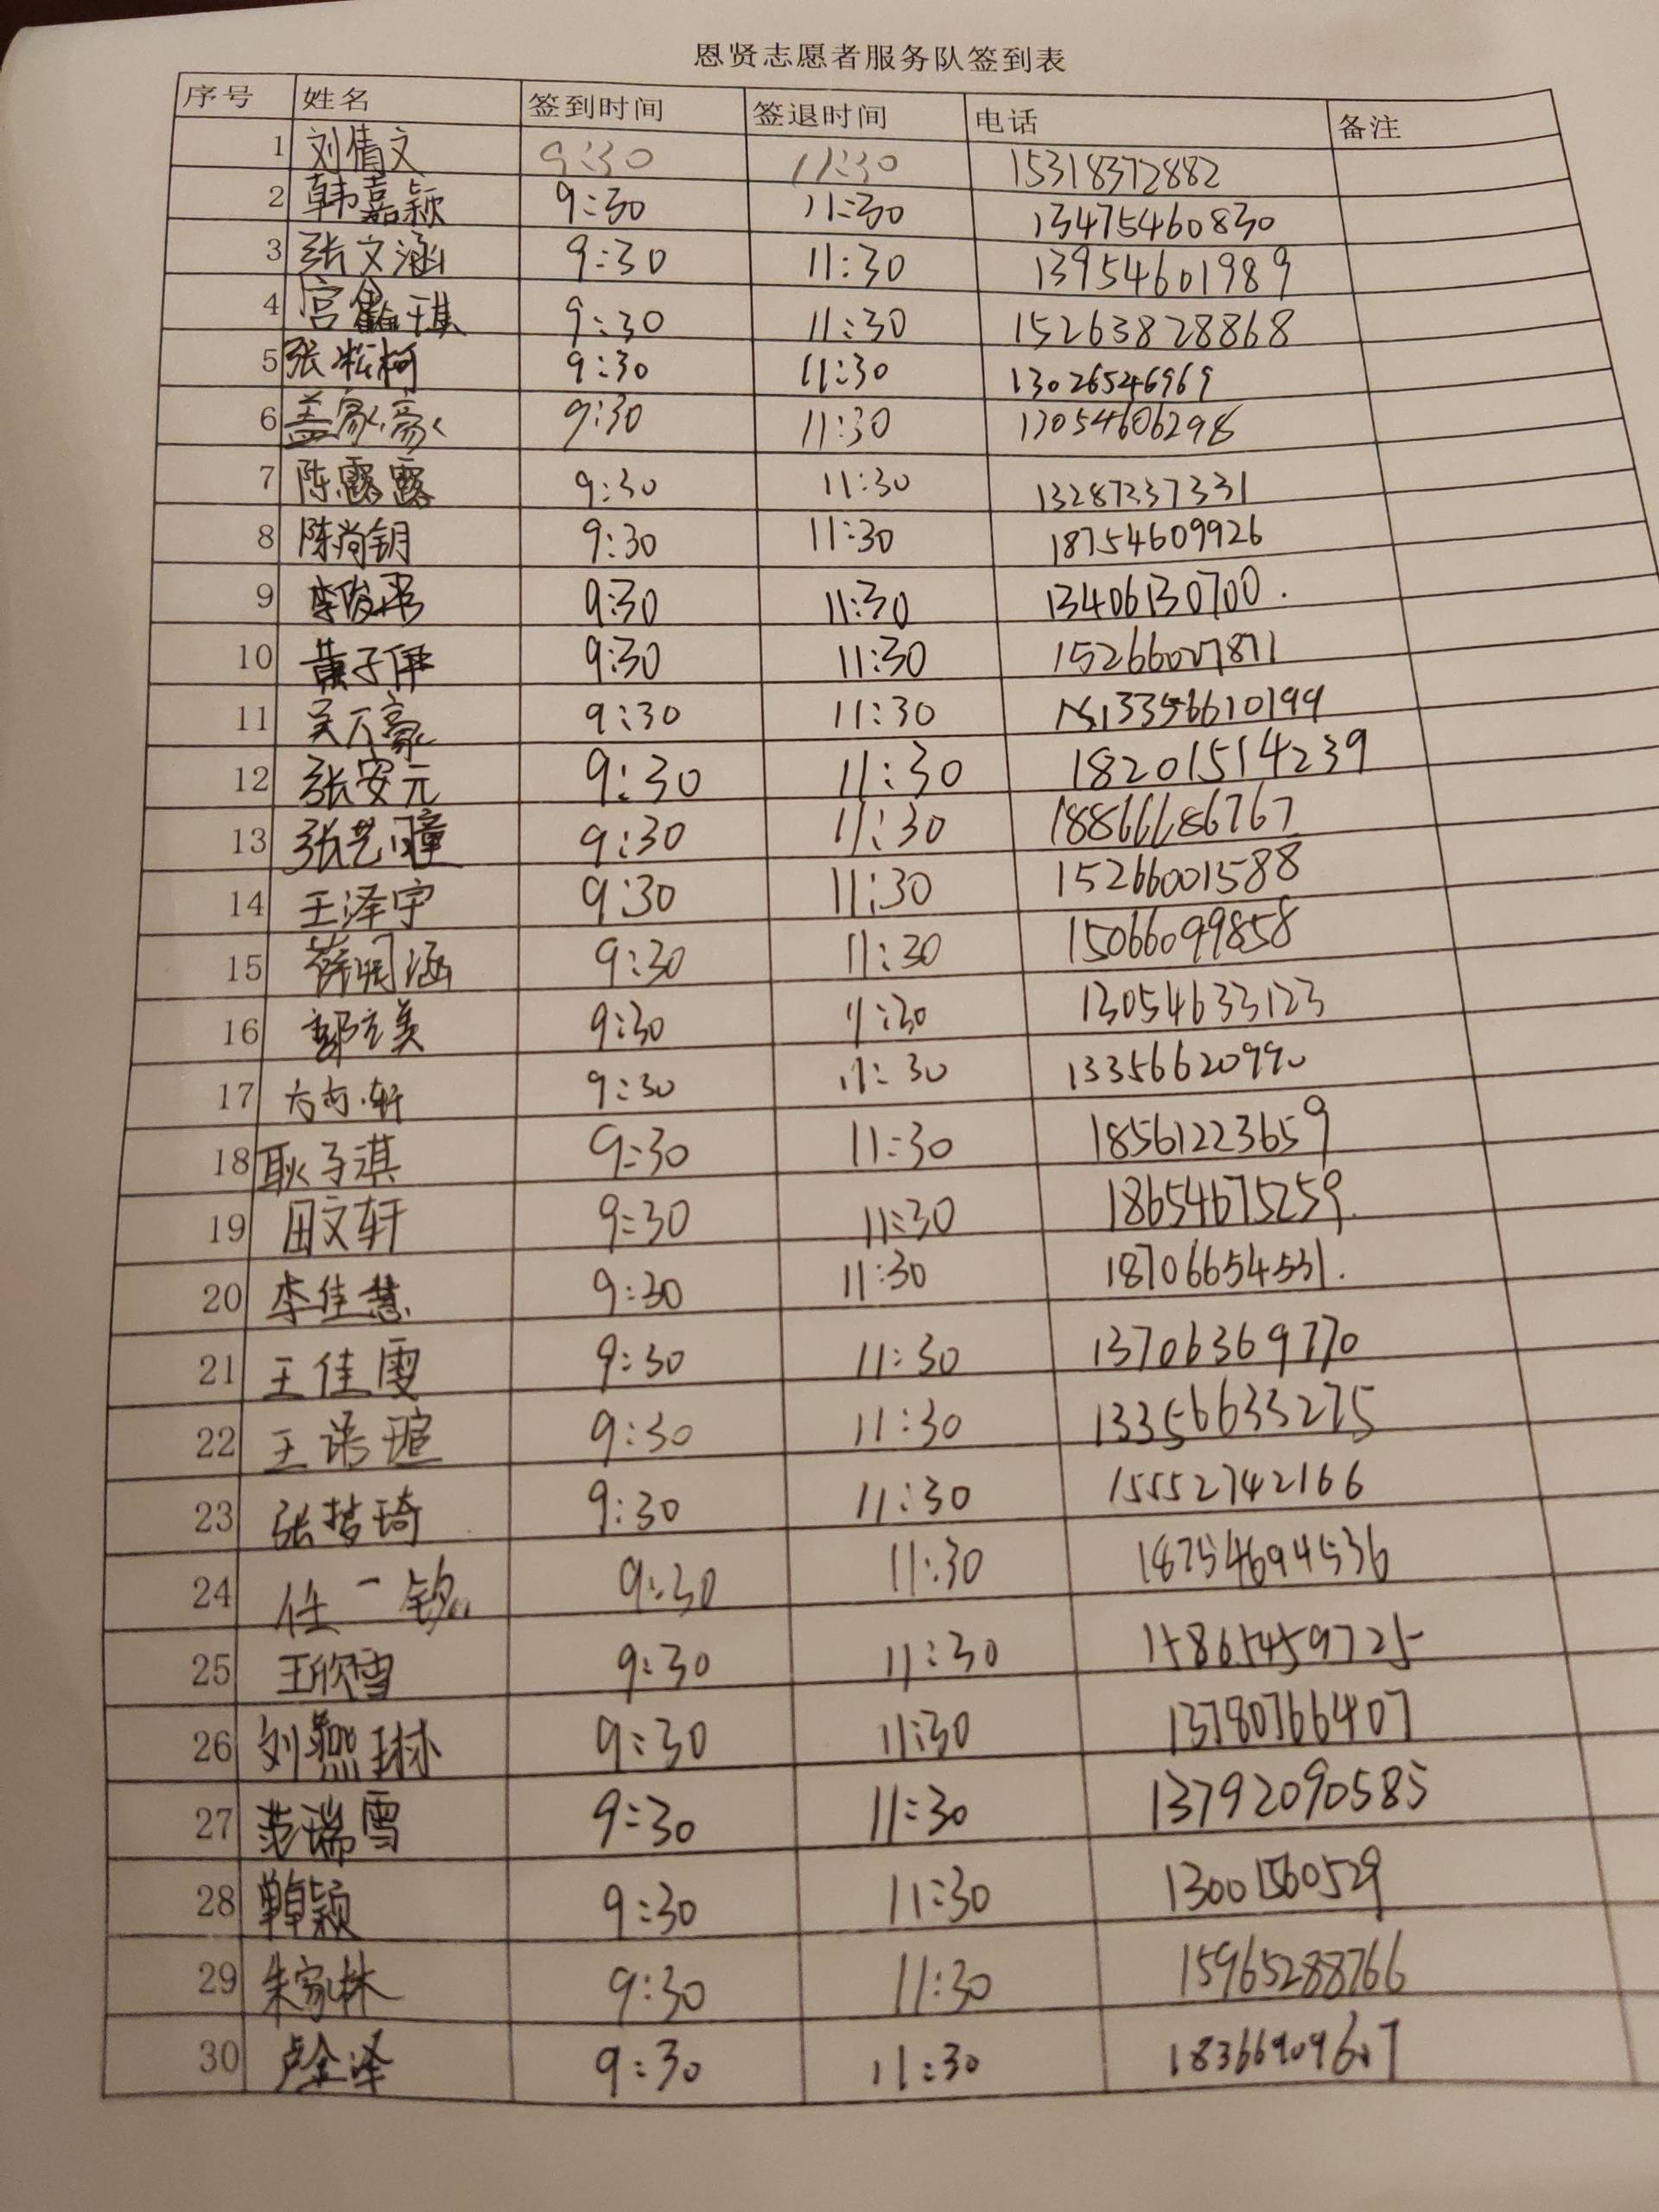 恩贤志愿者服务队签到表
序号 姓名 签到时间 签退时间 电话 备注
1 刘倩文 9:30 11:30 15318372882
2 韩嘉颖 9:30 11:30 13475460830
3 张文涵 9:30 11:30 13954601989
4 宫 琪 9:30 11:30 15263828868
5 张松柯 9:30 11:30 13026546969
6 盖家豪 9:30 11:30 13054606298
7 陈露露 9:30 11:30 13287237331
8 陈尚钥 9:30 11:30 18754609926
9 李俊 9:30 11:30 13406130700.
10 黄子伊 9:30 11:30 15266007871
11 吴万豪 9:30 11:30 13356610199
12 张安元 9:30 11:30 18201514239
13 张艺瞳 9:30 11:30 18866686767
14 王泽宇 9:30 11:30 15266001588
15 薛雨涵 9:30 11:30 15066099858
16 郭立美 9:30 11:30 13054633123
17 9:30 11:30 13356620990
18 耿子淇 9:30 11:30 18561223659
19 田文轩 9:30 11:30 18654675259.
20 李佳慧 9:30 11:30 18706654531.
21 王佳雯 9:30 11:30 13706369770
22 王诺瑄 9:30 11:30 13356633275
23 张梦琦 9:30 11:30 15552742166
24 任一铭 9:30 11:30 18754694536
25 王欣雪 9:30 11:30 15865459725
26 刘燕琳 9:30 11:30 13780766407
27 范瑞雪 9:30 11:30 13792090585
28 颖 9:30 11:30 13001560529
29 朱家林 9:30 11:30 15965288766
30 卢金泽 9:30 11:30